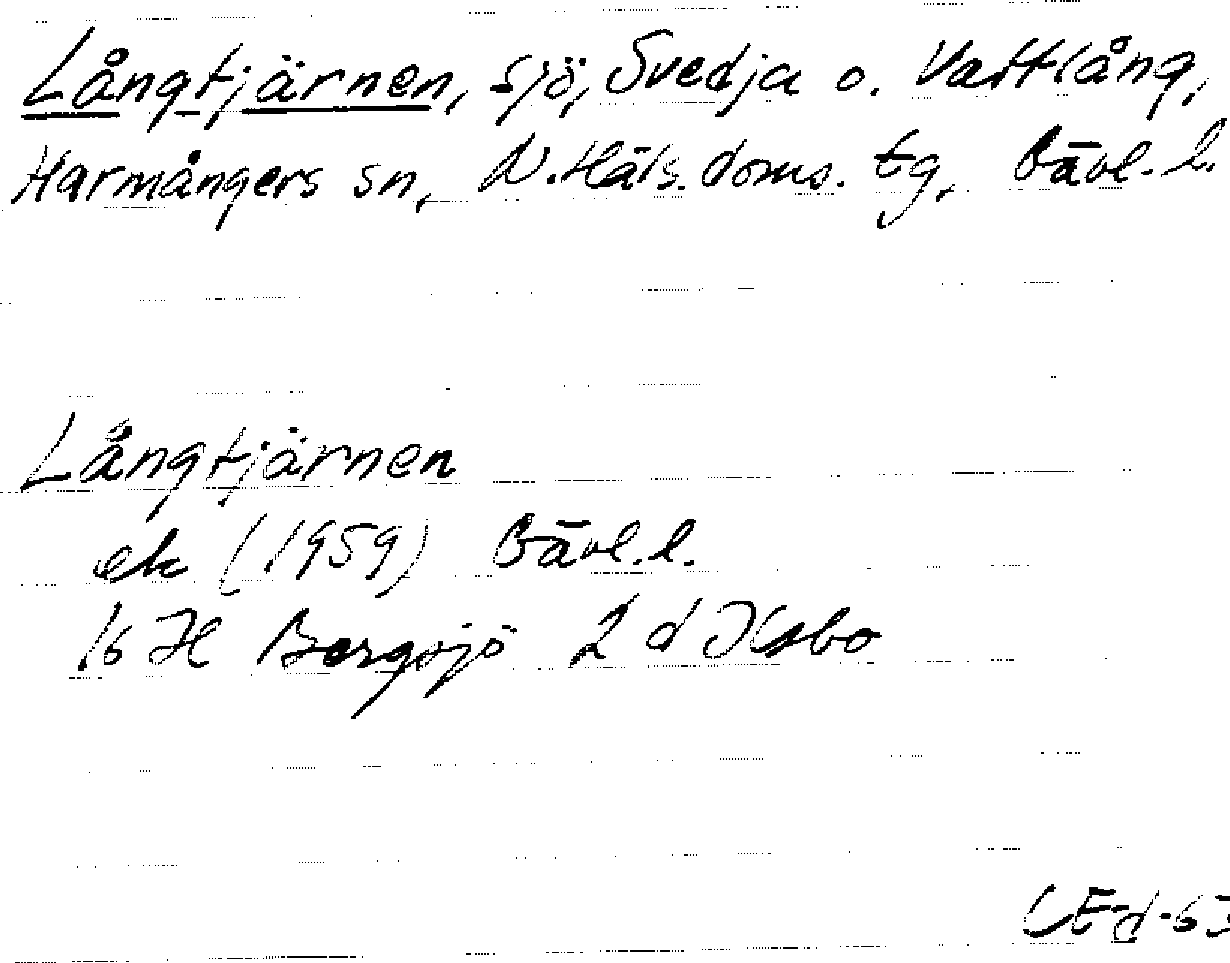 Långtjärnen, sjö, Svedja o. Vattlång,
Harmångers sn, N. Häls. doms. tg, Gävl. l.
Långtjärnen
ek (1959) Gävl. l.
16 H Bergsjö 2 d Ilsbo